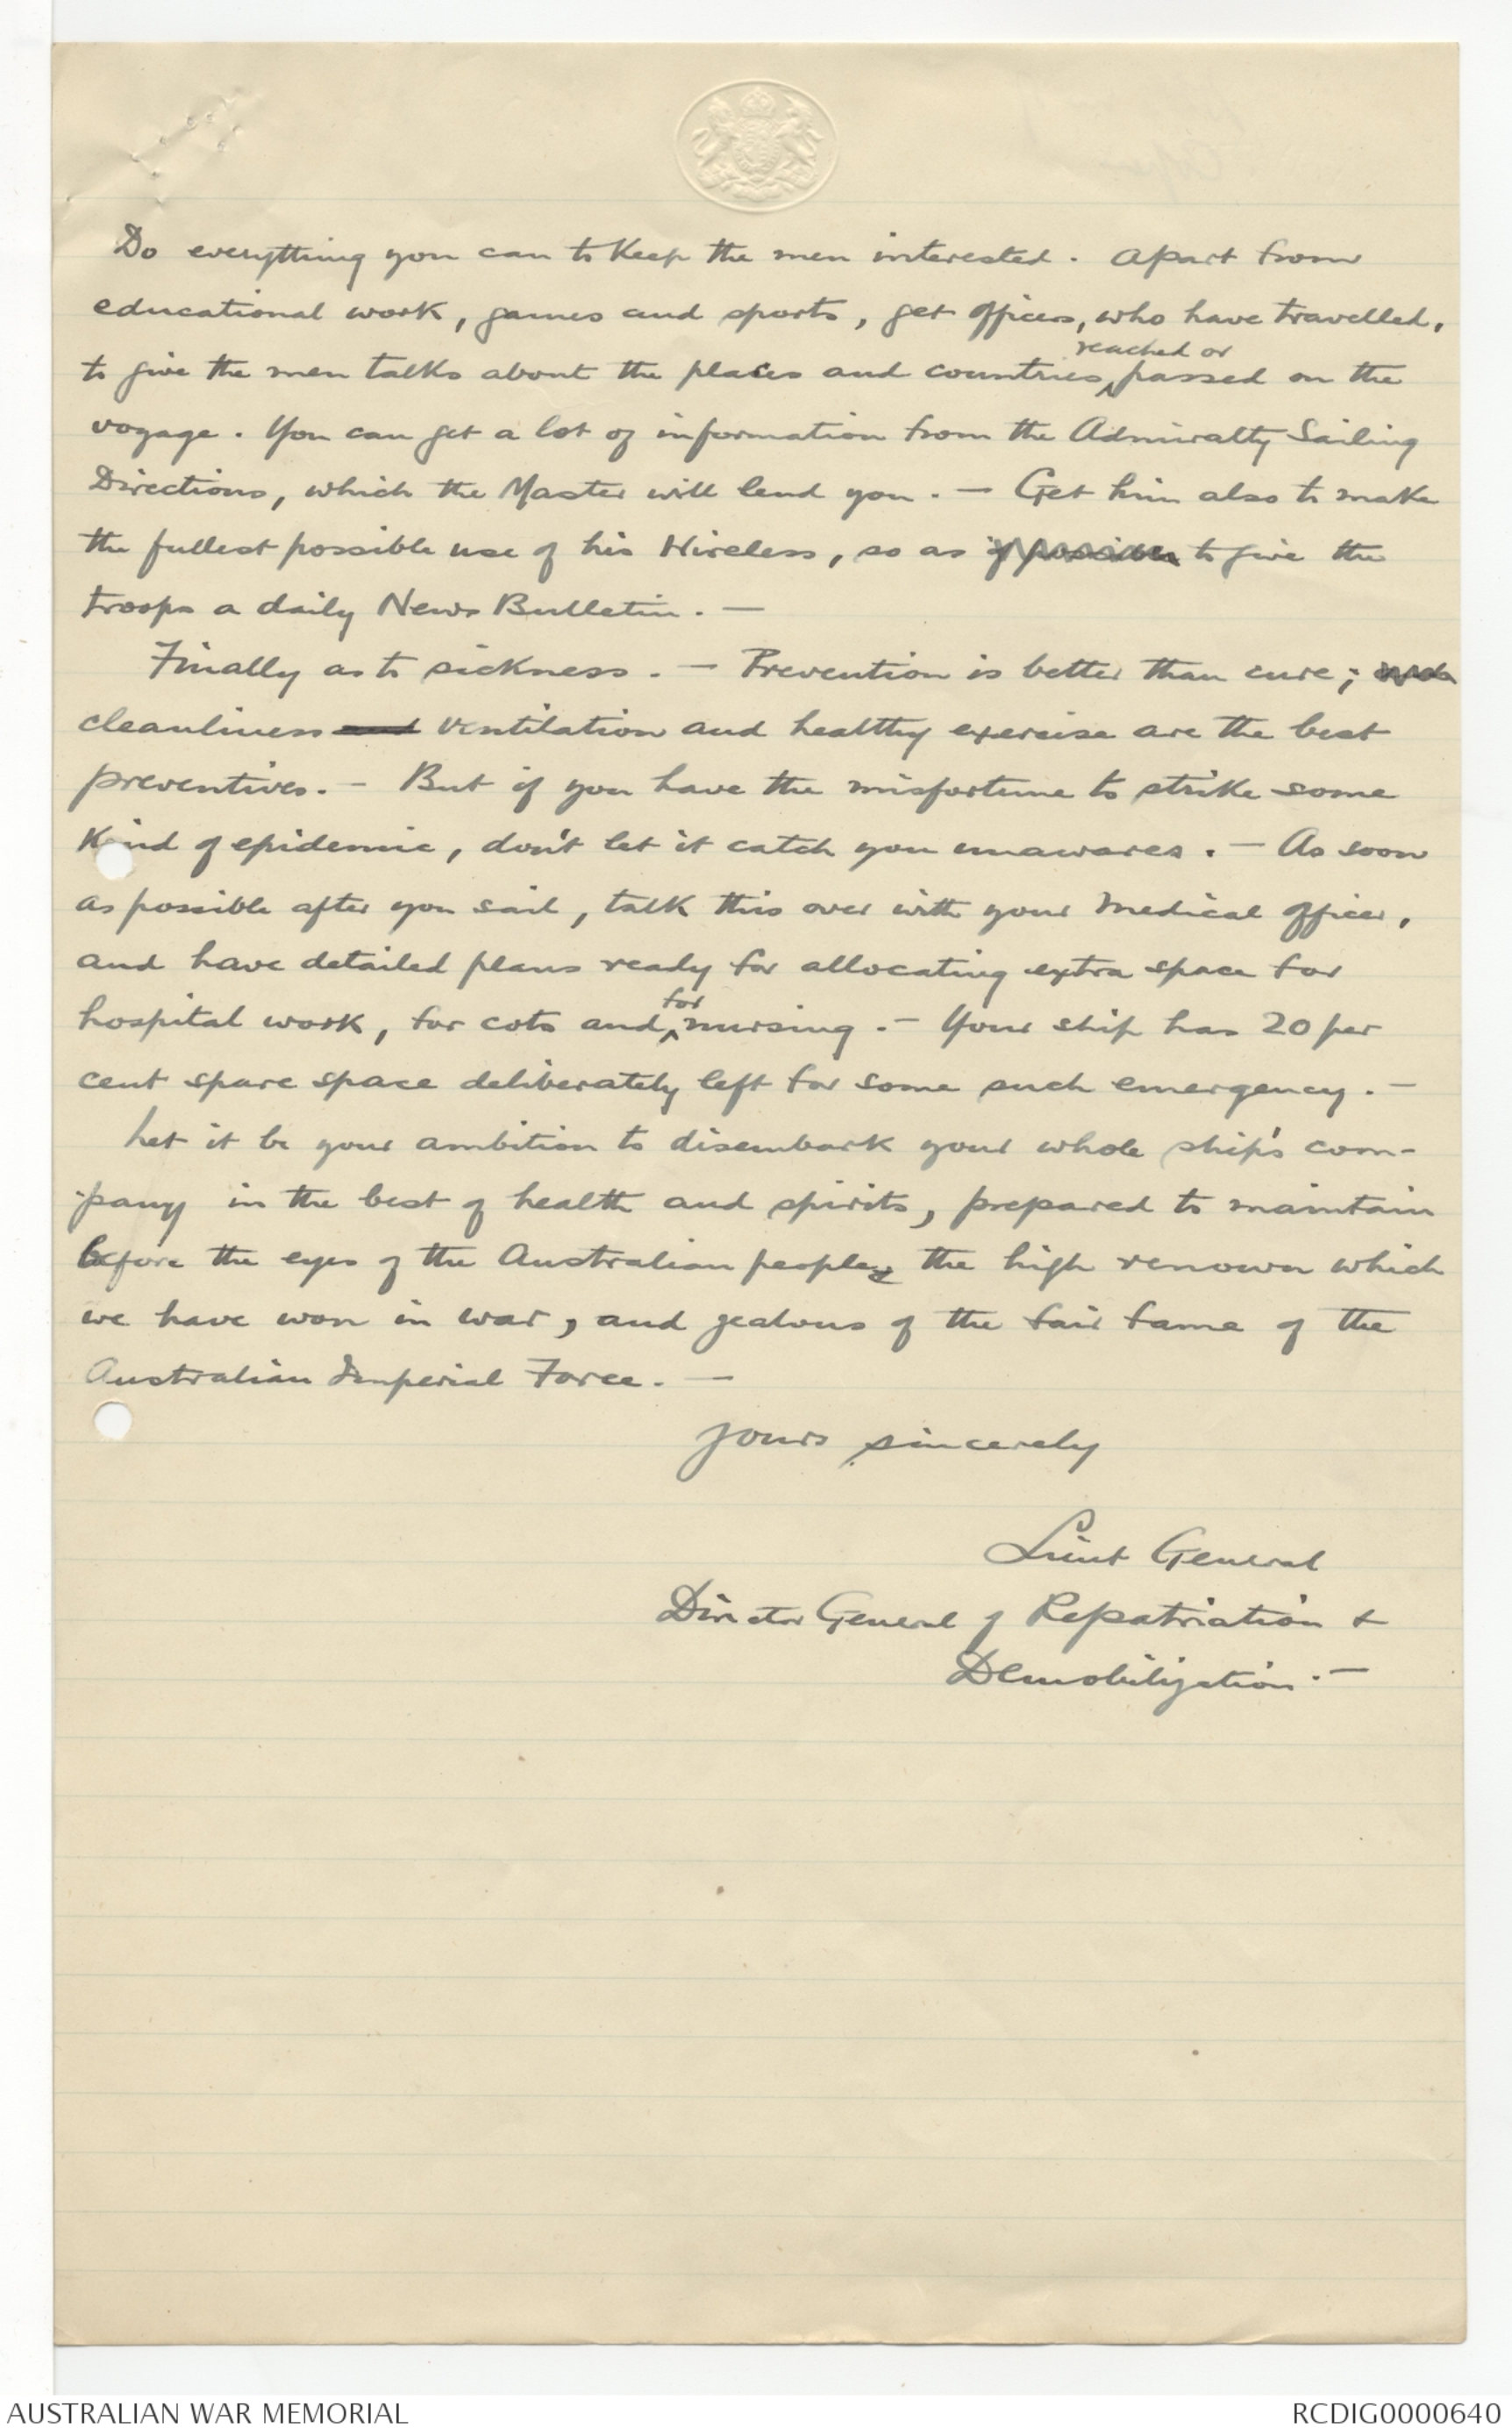 Do everything you can to keep the men interested. Apart from
educational work, games and sports, get officers, who have travelled,
reached or
to give the men talks about the places and countries passed on the
voyage. You can get a lot of information from the Admiralty Sailing
Directions, which the Master will lend you. — Get him also to make
the fullest possible use of his Wireless, so as if possible to give the
troops a daily News Bulletin. —
Finally as to sickness. — Prevention is better than cure; and
cleanliness and ventilation and healthy exercise are the best
preventives. — But if you have the misfortune to strike some
kind of epidemic, don't let it catch you unawares. — As soon
as possible after you sail, talk this over with your Medical Officer,
and have detailed plans ready for allocating extra space for
for
hospital work, for cots and nursing. — Your ship has 20 per
cent spare space deliberately left for some such emergency. —
Let it be your ambition to disembark your whole ship's com-
-pany in the best of health and spirits, prepared to maintain
before the eyes of the Australian people, the high renown which
we have won in war, and jealous of the fair fame of the
Australian Imperial Force. —
Yours sincerely
Lieut General
Director General of Repatriation &
Demobilization. —
AUSTRALIAN WAR MEMORIAL
RCDIG0000640